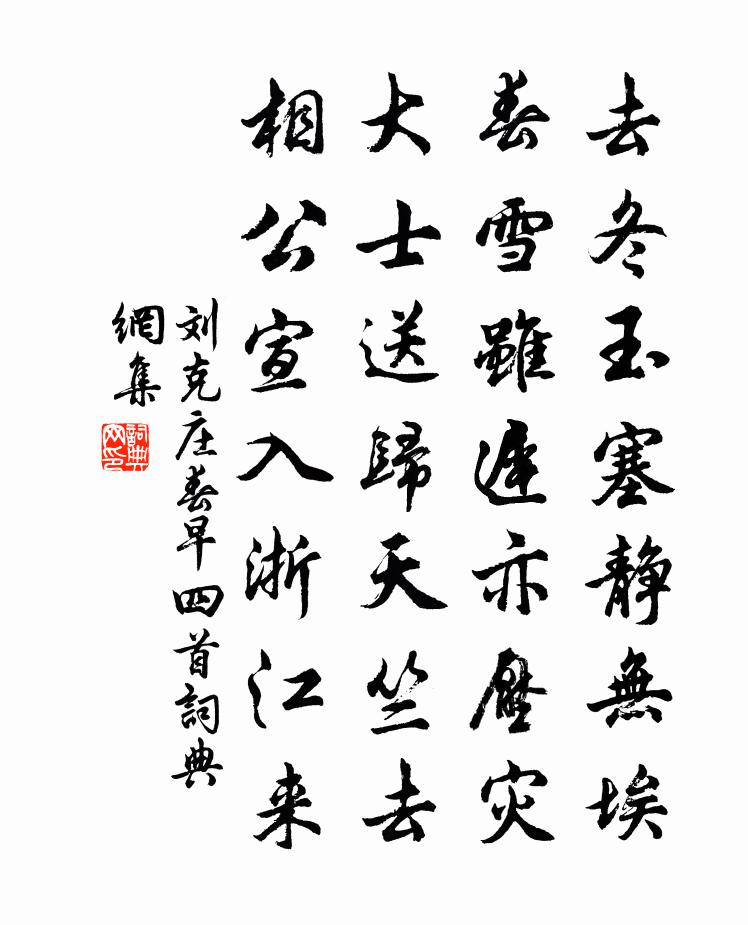 去冬玉塞静無埃
春雪雖遲亦壓災
大士送歸天竺去
相公宣入浙江来
刘克庄春早四首詞典
網集
詞典
网印